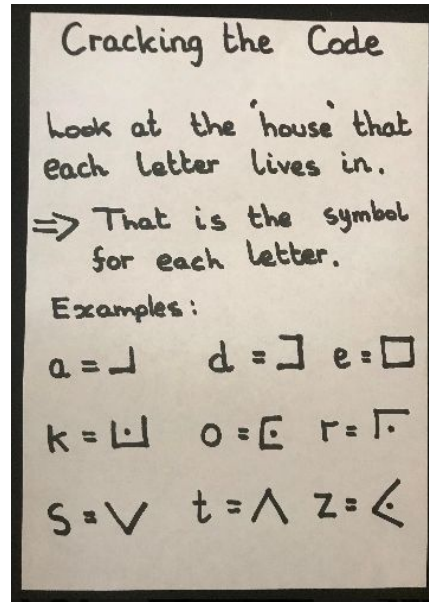 Cracking the Code
Look at the 'house' that
each letter lives in.
⇒ That is the symbol
for each letter.
Examples:
a = ⅃ d = ⊐ e = □
k = ⨃ o = ⊏· r = Γ·
s = ∨ t = ∧ z = <·